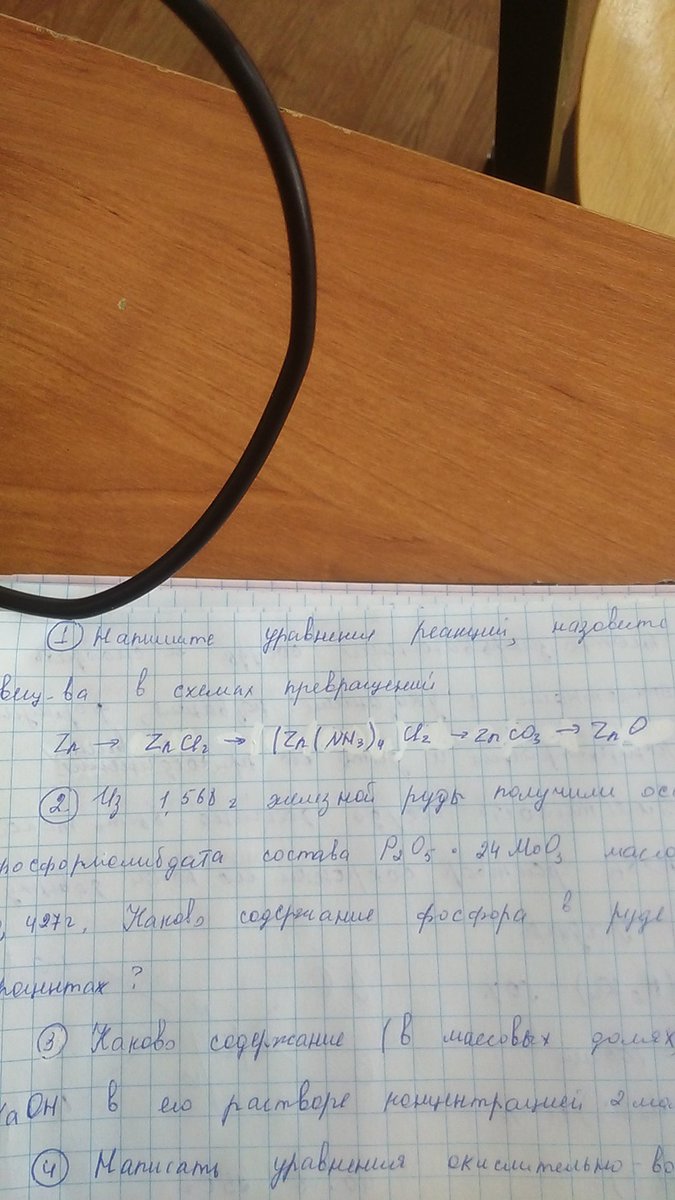 ① Напишите уравнения реакций, назовите
вещ-ва в схемах превращений
Zn → ZnCl₂ → [Zn(NH₃)₄]Cl₂ → ZnCO₃ → ZnO
② Из 1,568 г железной руды получили ос
фосформолибдата состава P₂O₅ · 24 MoO₃ массо
427г. Каково содержание фосфора в руде
роцентах ?
③ Каково содержание (в массовых долях
NaOH в его растворе концентрацией 2 мо
④ Написать уравнения окислительно-во